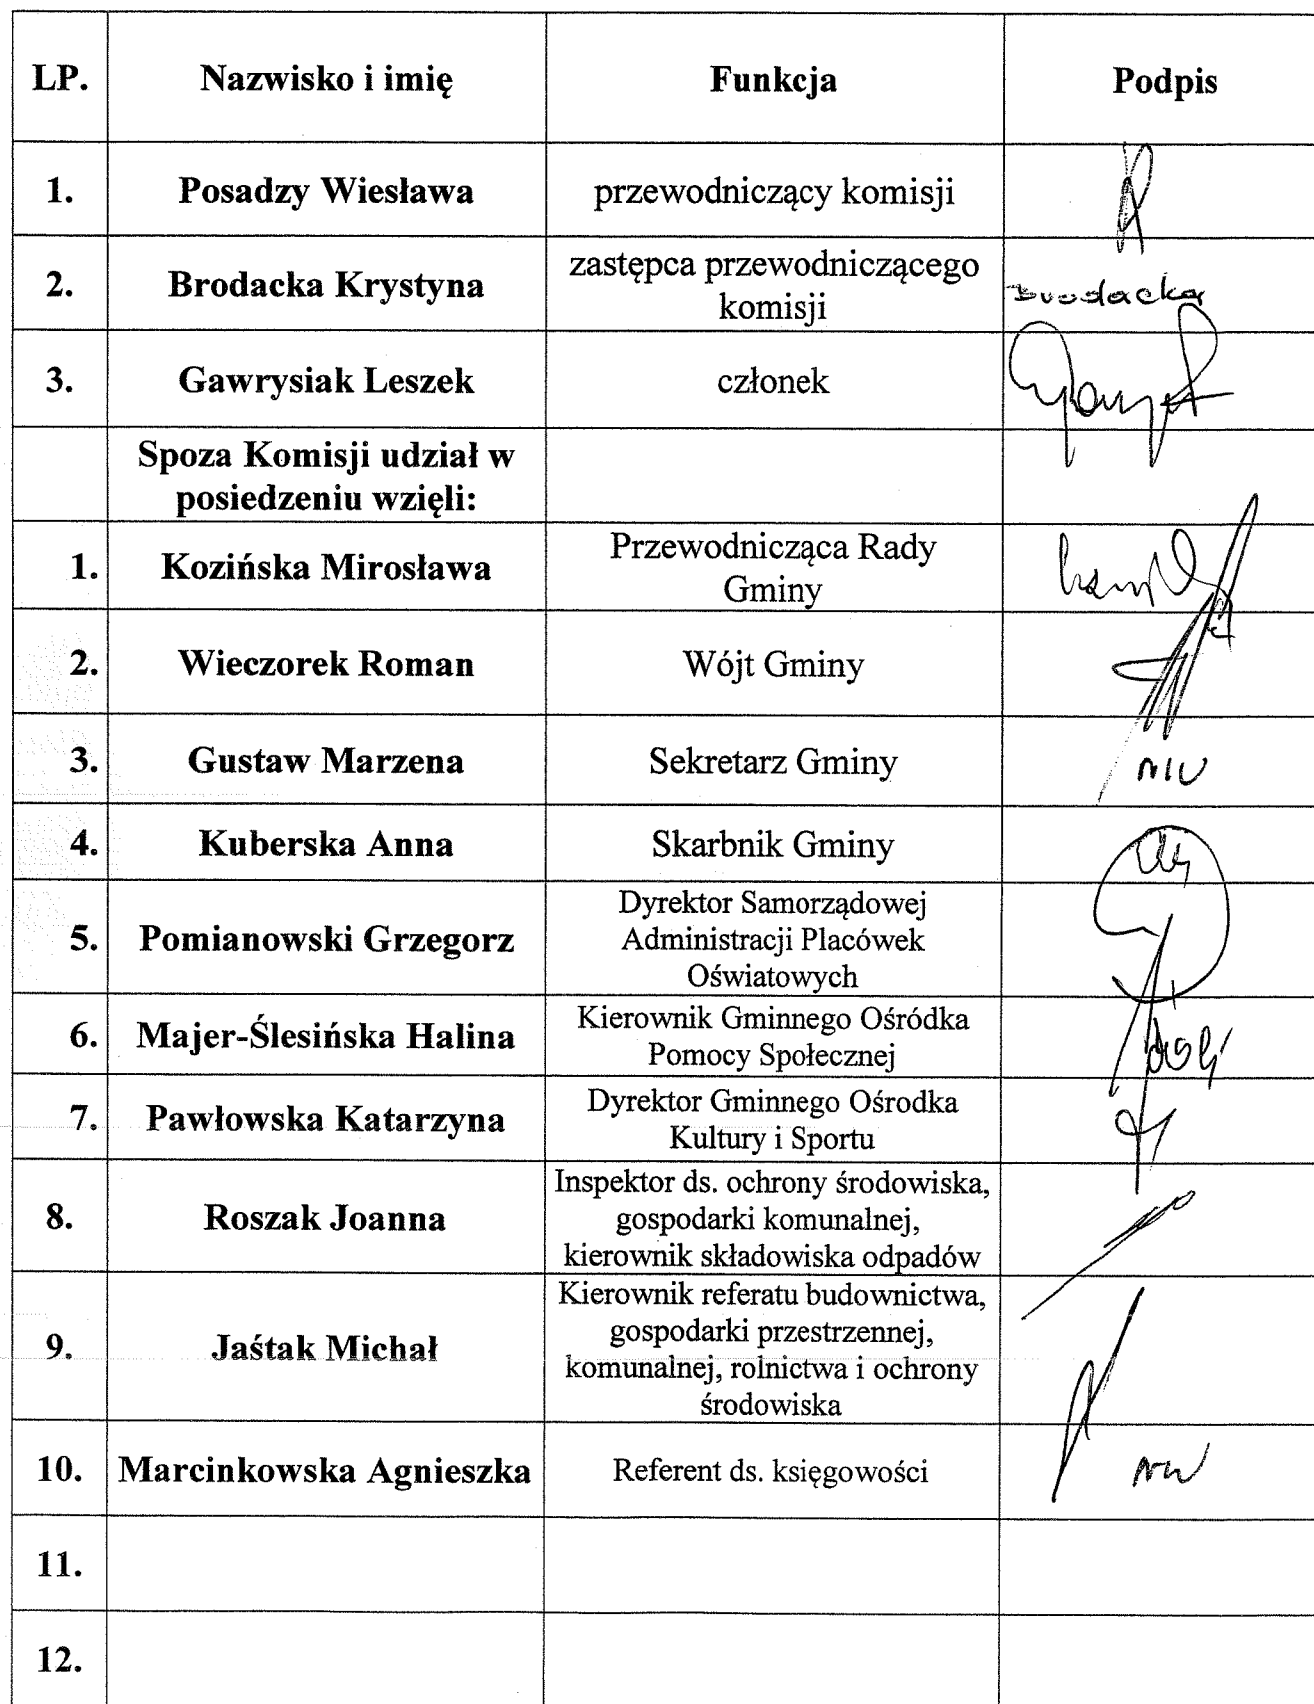 LP. Nazwisko i imię Funkcja Podpis
1. Posadzy Wiesława przewodniczący komisji
2. Brodacka Krystyna zastępca przewodniczącego
komisji Brodacka
3. Gawrysiak Leszek członek
Spoza Komisji udział w
posiedzeniu wzięli:
1. Kozińska Mirosława Przewodnicząca Rady
Gminy
2. Wieczorek Roman Wójt Gminy
3. Gustaw Marzena Sekretarz Gminy
4. Kuberska Anna Skarbnik Gminy
5. Pomianowski Grzegorz Dyrektor Samorządowej
Administracji Placówek
Oświatowych
6. Majer-Ślesińska Halina Kierownik Gminnego Ośródka
Pomocy Społecznej
7. Pawłowska Katarzyna Dyrektor Gminnego Ośrodka
Kultury i Sportu
8. Roszak Joanna Inspektor ds. ochrony środowiska,
gospodarki komunalnej,
kierownik składowiska odpadów
9. Jaśtak Michał Kierownik referatu budownictwa,
gospodarki przestrzennej,
komunalnej, rolnictwa i ochrony
środowiska
10. Marcinkowska Agnieszka Referent ds. księgowości
11.
12.